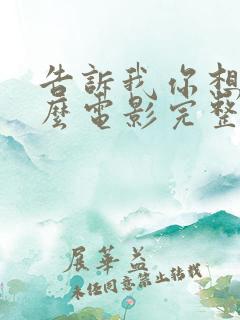 告訴我你想
麼電影完整
展華益
未經同意禁止转载